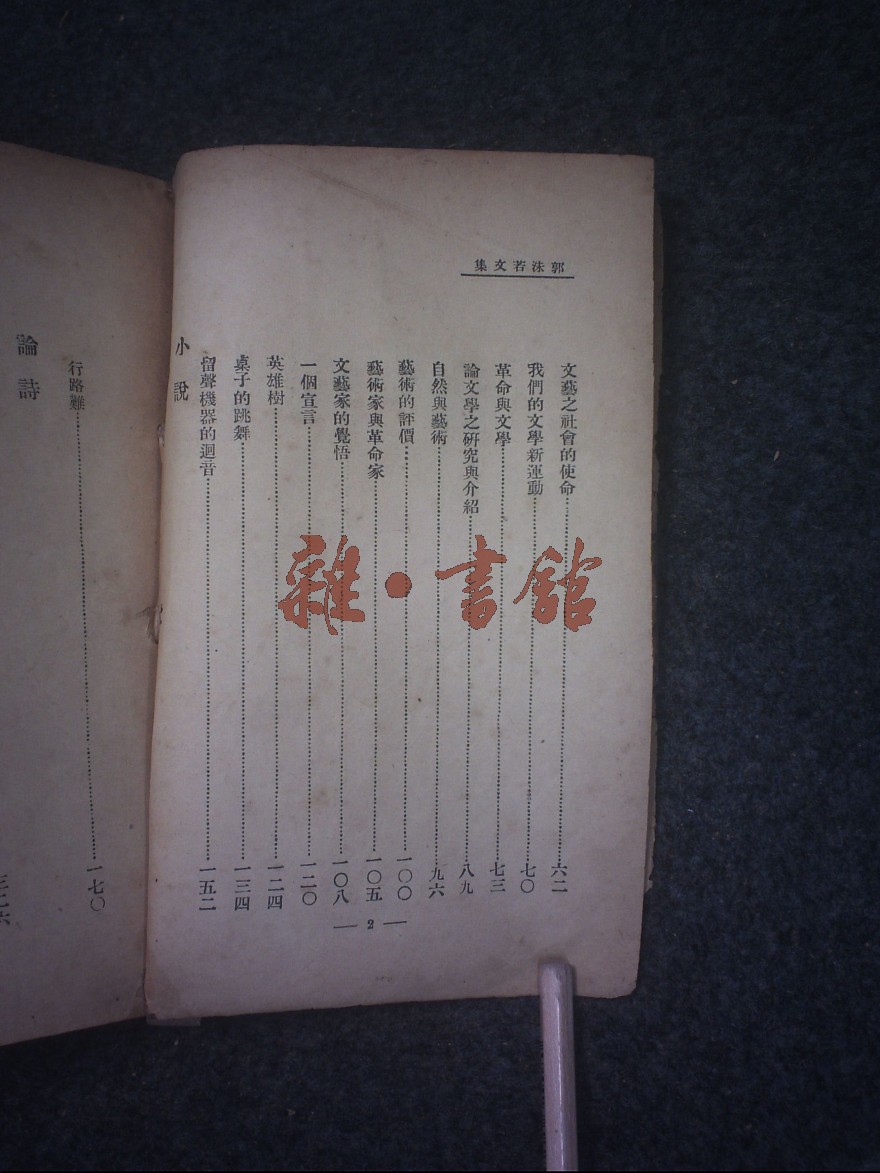 郭沫若文集
文藝之社會的使命……六二
我們的文學新運動……七〇
革命與文學……七三
論文學之研究與介紹……八九
自然與藝術……九六
藝術的評價……一〇〇
藝術家與革命家……一〇五
文藝家的覺悟……一〇八
一個宣言……一二〇
英雄樹……一二四
桌子的跳舞……一三四
留聲機器的迴音……一五二
小說
— 2 —
行路難……一七〇
論詩
雜·書館